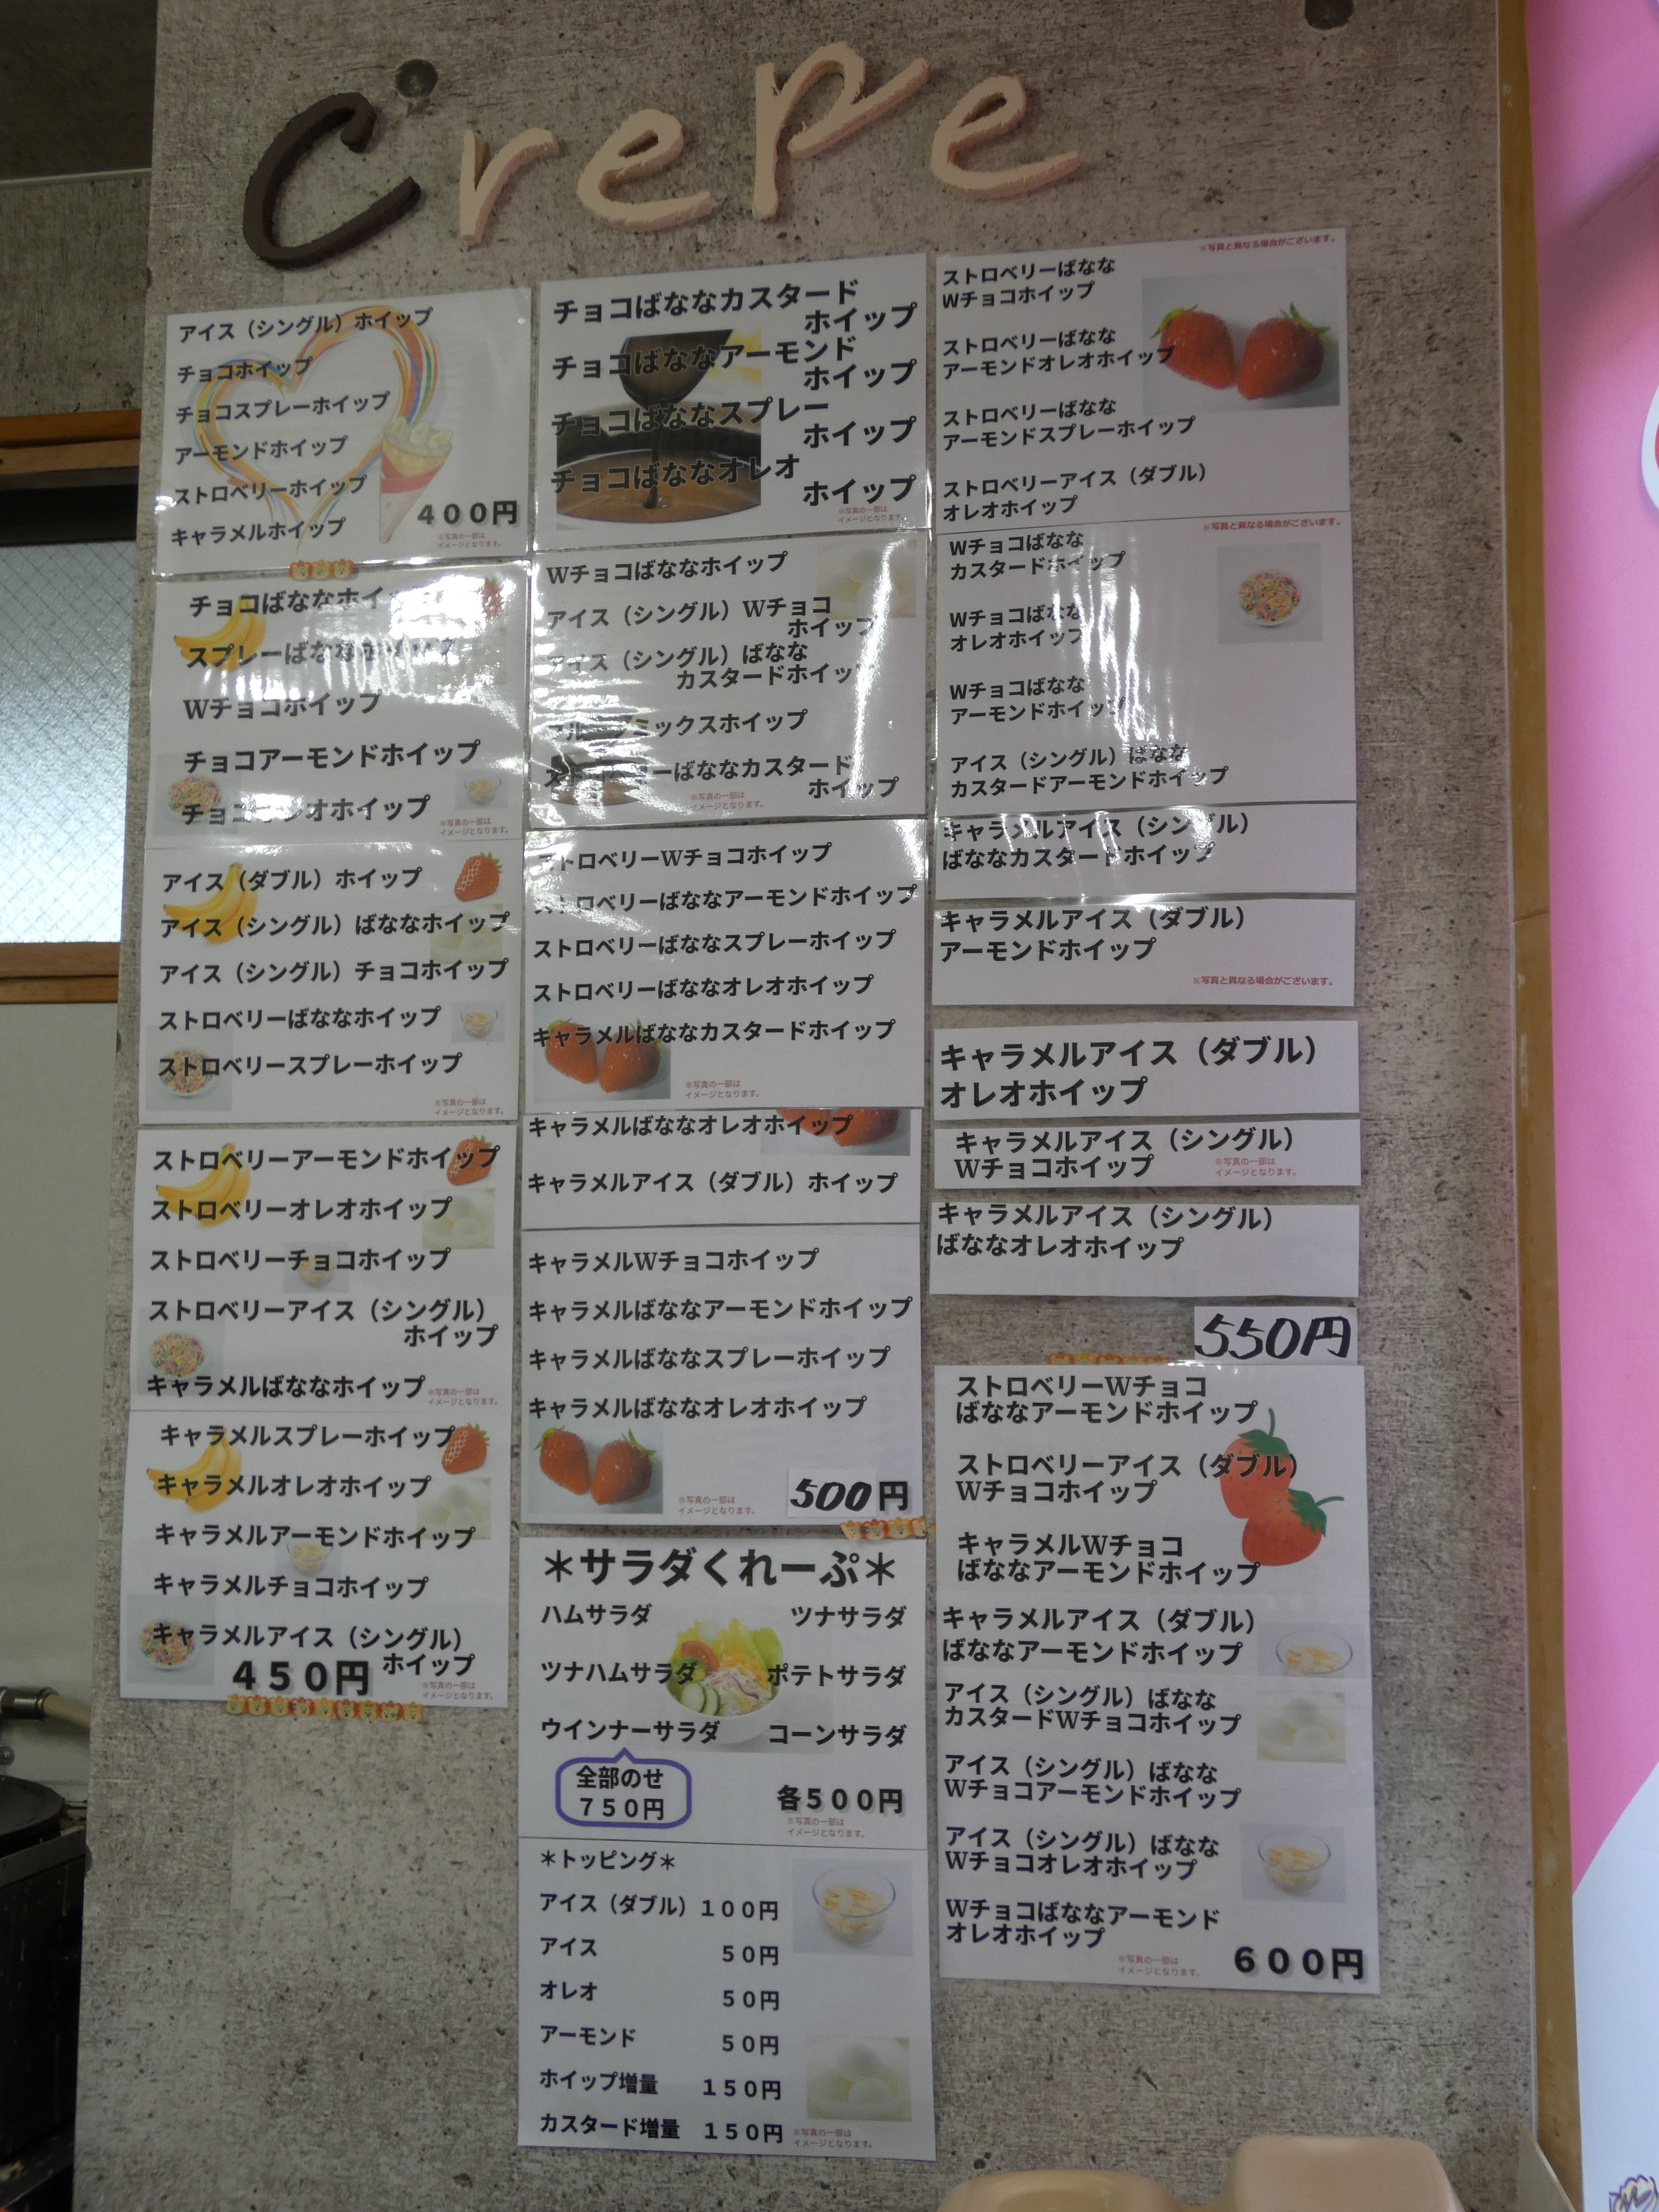 Crepe
アイス（シングル）ホイップ
チョコホイップ
チョコスプレーホイップ
アーモンドホイップ
ストロベリーホイップ
キャラメルホイップ
400円
※写真の一部は
イメージとなります。
チョコばななホイ
スプレーばなな
Wチョコホイップ
チョコアーモンドホイップ
チョコオレオホイップ
※写真の一部は
イメージとなります。
アイス（ダブル）ホイップ
アイス（シングル）ばななホイップ
アイス（シングル）チョコホイップ
ストロベリーばななホイップ
ストロベリースプレーホイップ
※写真の一部は
イメージとなります。
ストロベリーアーモンドホイップ
ストロベリーオレオホイップ
ストロベリーチョコホイップ
ストロベリーアイス（シングル）
ホイップ
キャラメルばななホイップ
※写真の一部は
イメージとなります。
キャラメルスプレーホイップ
キャラメルオレオホイップ
キャラメルアーモンドホイップ
キャラメルチョコホイップ
キャラメルアイス（シングル）
ホイップ
450円
※写真の一部は
イメージとなります。
チョコばななカスタード
ホイップ
チョコばななアーモンド
ホイップ
チョコばななスプレー
ホイップ
チョコばななオレオ
ホイップ
※写真の一部は
イメージとなります。
Wチョコばななホイップ
アイス（シングル）Wチョコ
ホイップ
アイス（シングル）ばなな
カスタードホイップ
フルーツミックスホイップ
ストロベリーばななカスタード
ホイップ
※写真の一部は
イメージとなります。
ストロベリーWチョコホイップ
ストロベリーばななアーモンドホイップ
ストロベリーばななスプレーホイップ
ストロベリーばななオレオホイップ
キャラメルばななカスタードホイップ
※写真の一部は
イメージとなります。
キャラメルばななオレオホイップ
キャラメルアイス（ダブル）ホイップ
キャラメルWチョコホイップ
キャラメルばななアーモンドホイップ
キャラメルばななスプレーホイップ
キャラメルばななオレオホイップ
※写真の一部は
イメージとなります。
500円
＊サラダくれーぷ＊
ハムサラダ ツナサラダ
ツナハムサラダ ポテトサラダ
ウインナーサラダ コーンサラダ
全部のせ
750円
各500円
※写真の一部は
イメージとなります。
＊トッピング＊
アイス（ダブル）100円
アイス 50円
オレオ 50円
アーモンド 50円
ホイップ増量 150円
カスタード増量 150円
※写真の一部は
イメージとなります。
※写真と異なる場合がございます。
ストロベリーばなな
Wチョコホイップ
ストロベリーばなな
アーモンドオレオホイップ
ストロベリーばなな
アーモンドスプレーホイップ
ストロベリーアイス（ダブル）
オレオホイップ
※写真と異なる場合がございます。
Wチョコばなな
カスタードホイップ
Wチョコばなな
オレオホイップ
Wチョコばなな
アーモンドホイップ
アイス（シングル）ばなな
カスタードアーモンドホイップ
キャラメルアイス（シングル）
ばななカスタードホイップ
キャラメルアイス（ダブル）
アーモンドホイップ
※写真と異なる場合がございます。
キャラメルアイス（ダブル）
オレオホイップ
キャラメルアイス（シングル）
Wチョコホイップ
※写真の一部は
イメージとなります。
キャラメルアイス（シングル）
ばななオレオホイップ
550円
ストロベリーWチョコ
ばななアーモンドホイップ
ストロベリーアイス（ダブル）
Wチョコホイップ
キャラメルWチョコ
ばななアーモンドホイップ
キャラメルアイス（ダブル）
ばななアーモンドホイップ
アイス（シングル）ばなな
カスタードWチョコホイップ
アイス（シングル）ばなな
Wチョコアーモンドホイップ
アイス（シングル）ばなな
Wチョコオレオホイップ
Wチョコばななアーモンド
オレオホイップ
※写真の一部は
イメージとなります。
600円